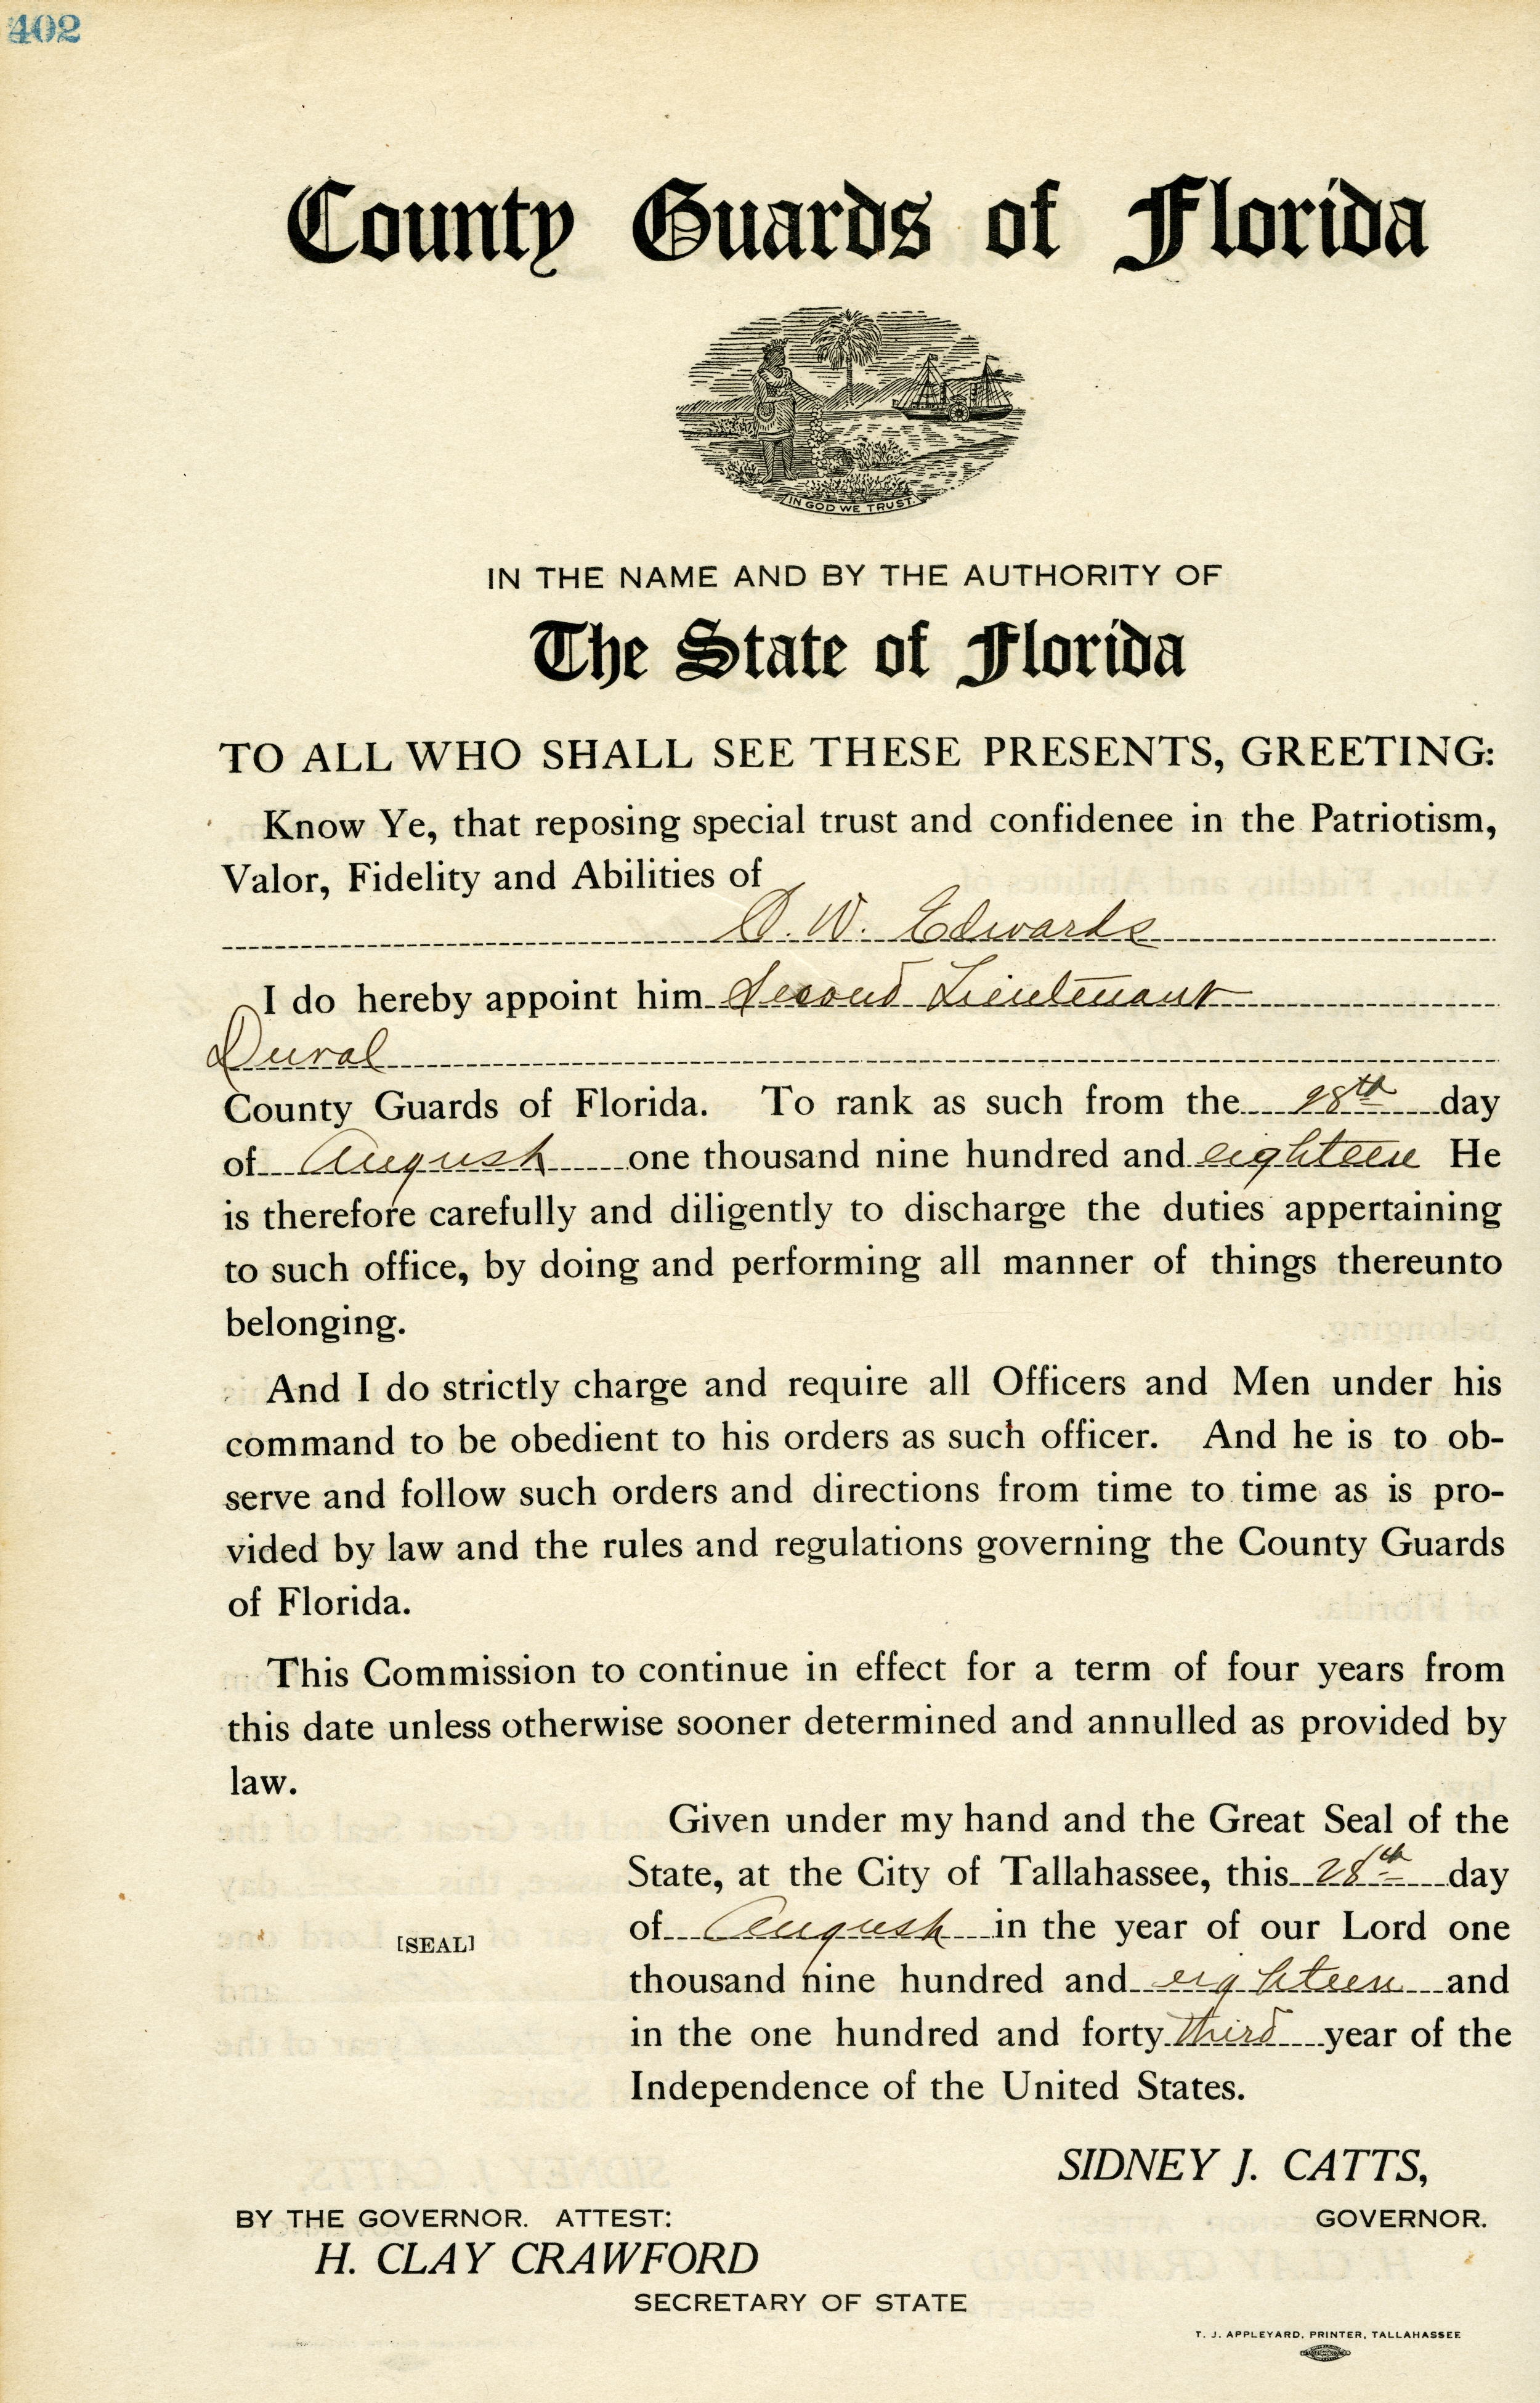 402
County Guards of Florida
IN GOD WE TRUST.
IN THE NAME AND BY THE AUTHORITY OF
The State of Florida
TO ALL WHO SHALL SEE THESE PRESENTS, GREETING:
Know Ye, that reposing special trust and confidenee in the Patriotism,
Valor, Fidelity and Abilities of
W. Edwards
I do hereby appoint him Second Lieutenant
Duval
County Guards of Florida. To rank as such from the 28th day
of August one thousand nine hundred and eighteen He
is therefore carefully and diligently to discharge the duties appertaining
to such office, by doing and performing all manner of things thereunto
belonging.
And I do strictly charge and require all Officers and Men under his
command to be obedient to his orders as such officer. And he is to ob-
serve and follow such orders and directions from time to time as is pro-
vided by law and the rules and regulations governing the County Guards
of Florida.
This Commission to continue in effect for a term of four years from
this date unless otherwise sooner determined and annulled as provided by
law.
Given under my hand and the Great Seal of the
State, at the City of Tallahassee, this 28th day
of August in the year of our Lord one
[SEAL]
thousand nine hundred and eighteen and
in the one hundred and forty third year of the
Independence of the United States.
SIDNEY J. CATTS,
GOVERNOR.
BY THE GOVERNOR. ATTEST:
H. CLAY CRAWFORD
SECRETARY OF STATE
T. J. APPLEYARD, PRINTER, TALLAHASSEE